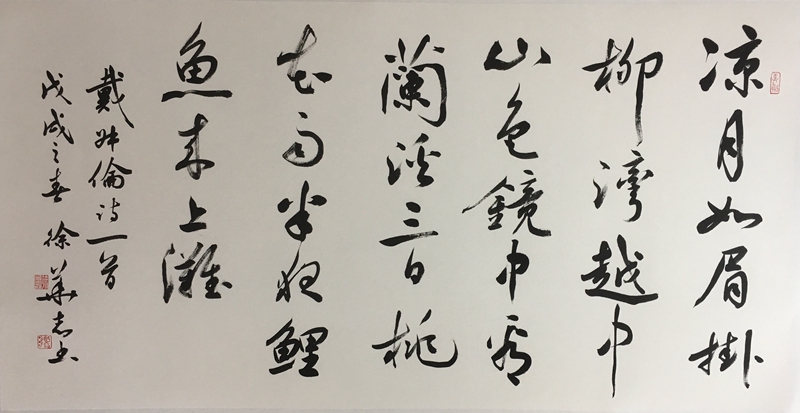 凉月如眉掛
柳灣越中
山色鏡中看
蘭溪三日桃
花雨半夜鯉
魚來上灘
戴叔倫诗一首
戊戌之春徐華志書